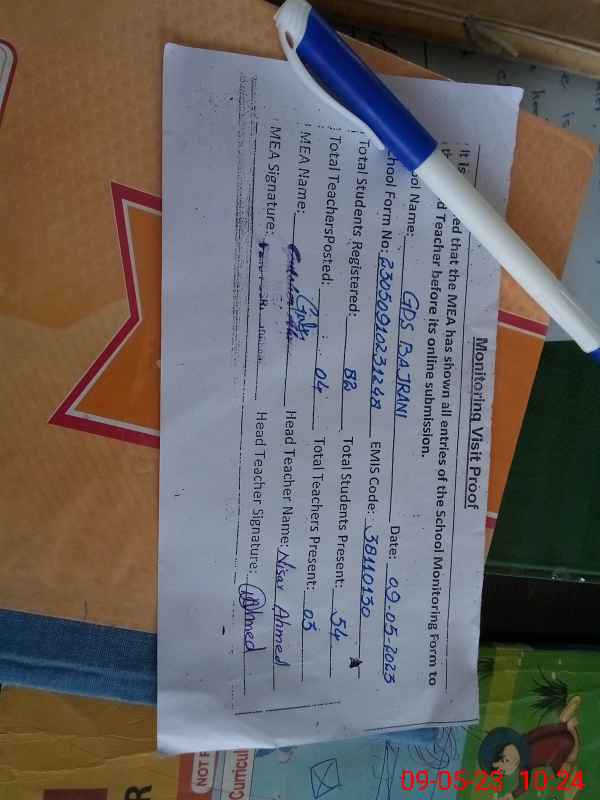 Monitoring Visit Proof
It is ed that the MEA has shown all entries of the School Monitoring Form to
d Teacher before its online submission.
ool Name: GPS BAJRANI Date: 09-05-2023
chool Form No: 23050910231248 EMIS Code: 38110130
Total Students Registered: 82 Total Students Present: 54
Total TeachersPosted: 04 Total Teachers Present: 03
MEA Name: Head Teacher Name: Nisar Ahmed
MEA Signature: Head Teacher Signature: Ahmed
NOT F
Curricul
R
09-05-23 10:24